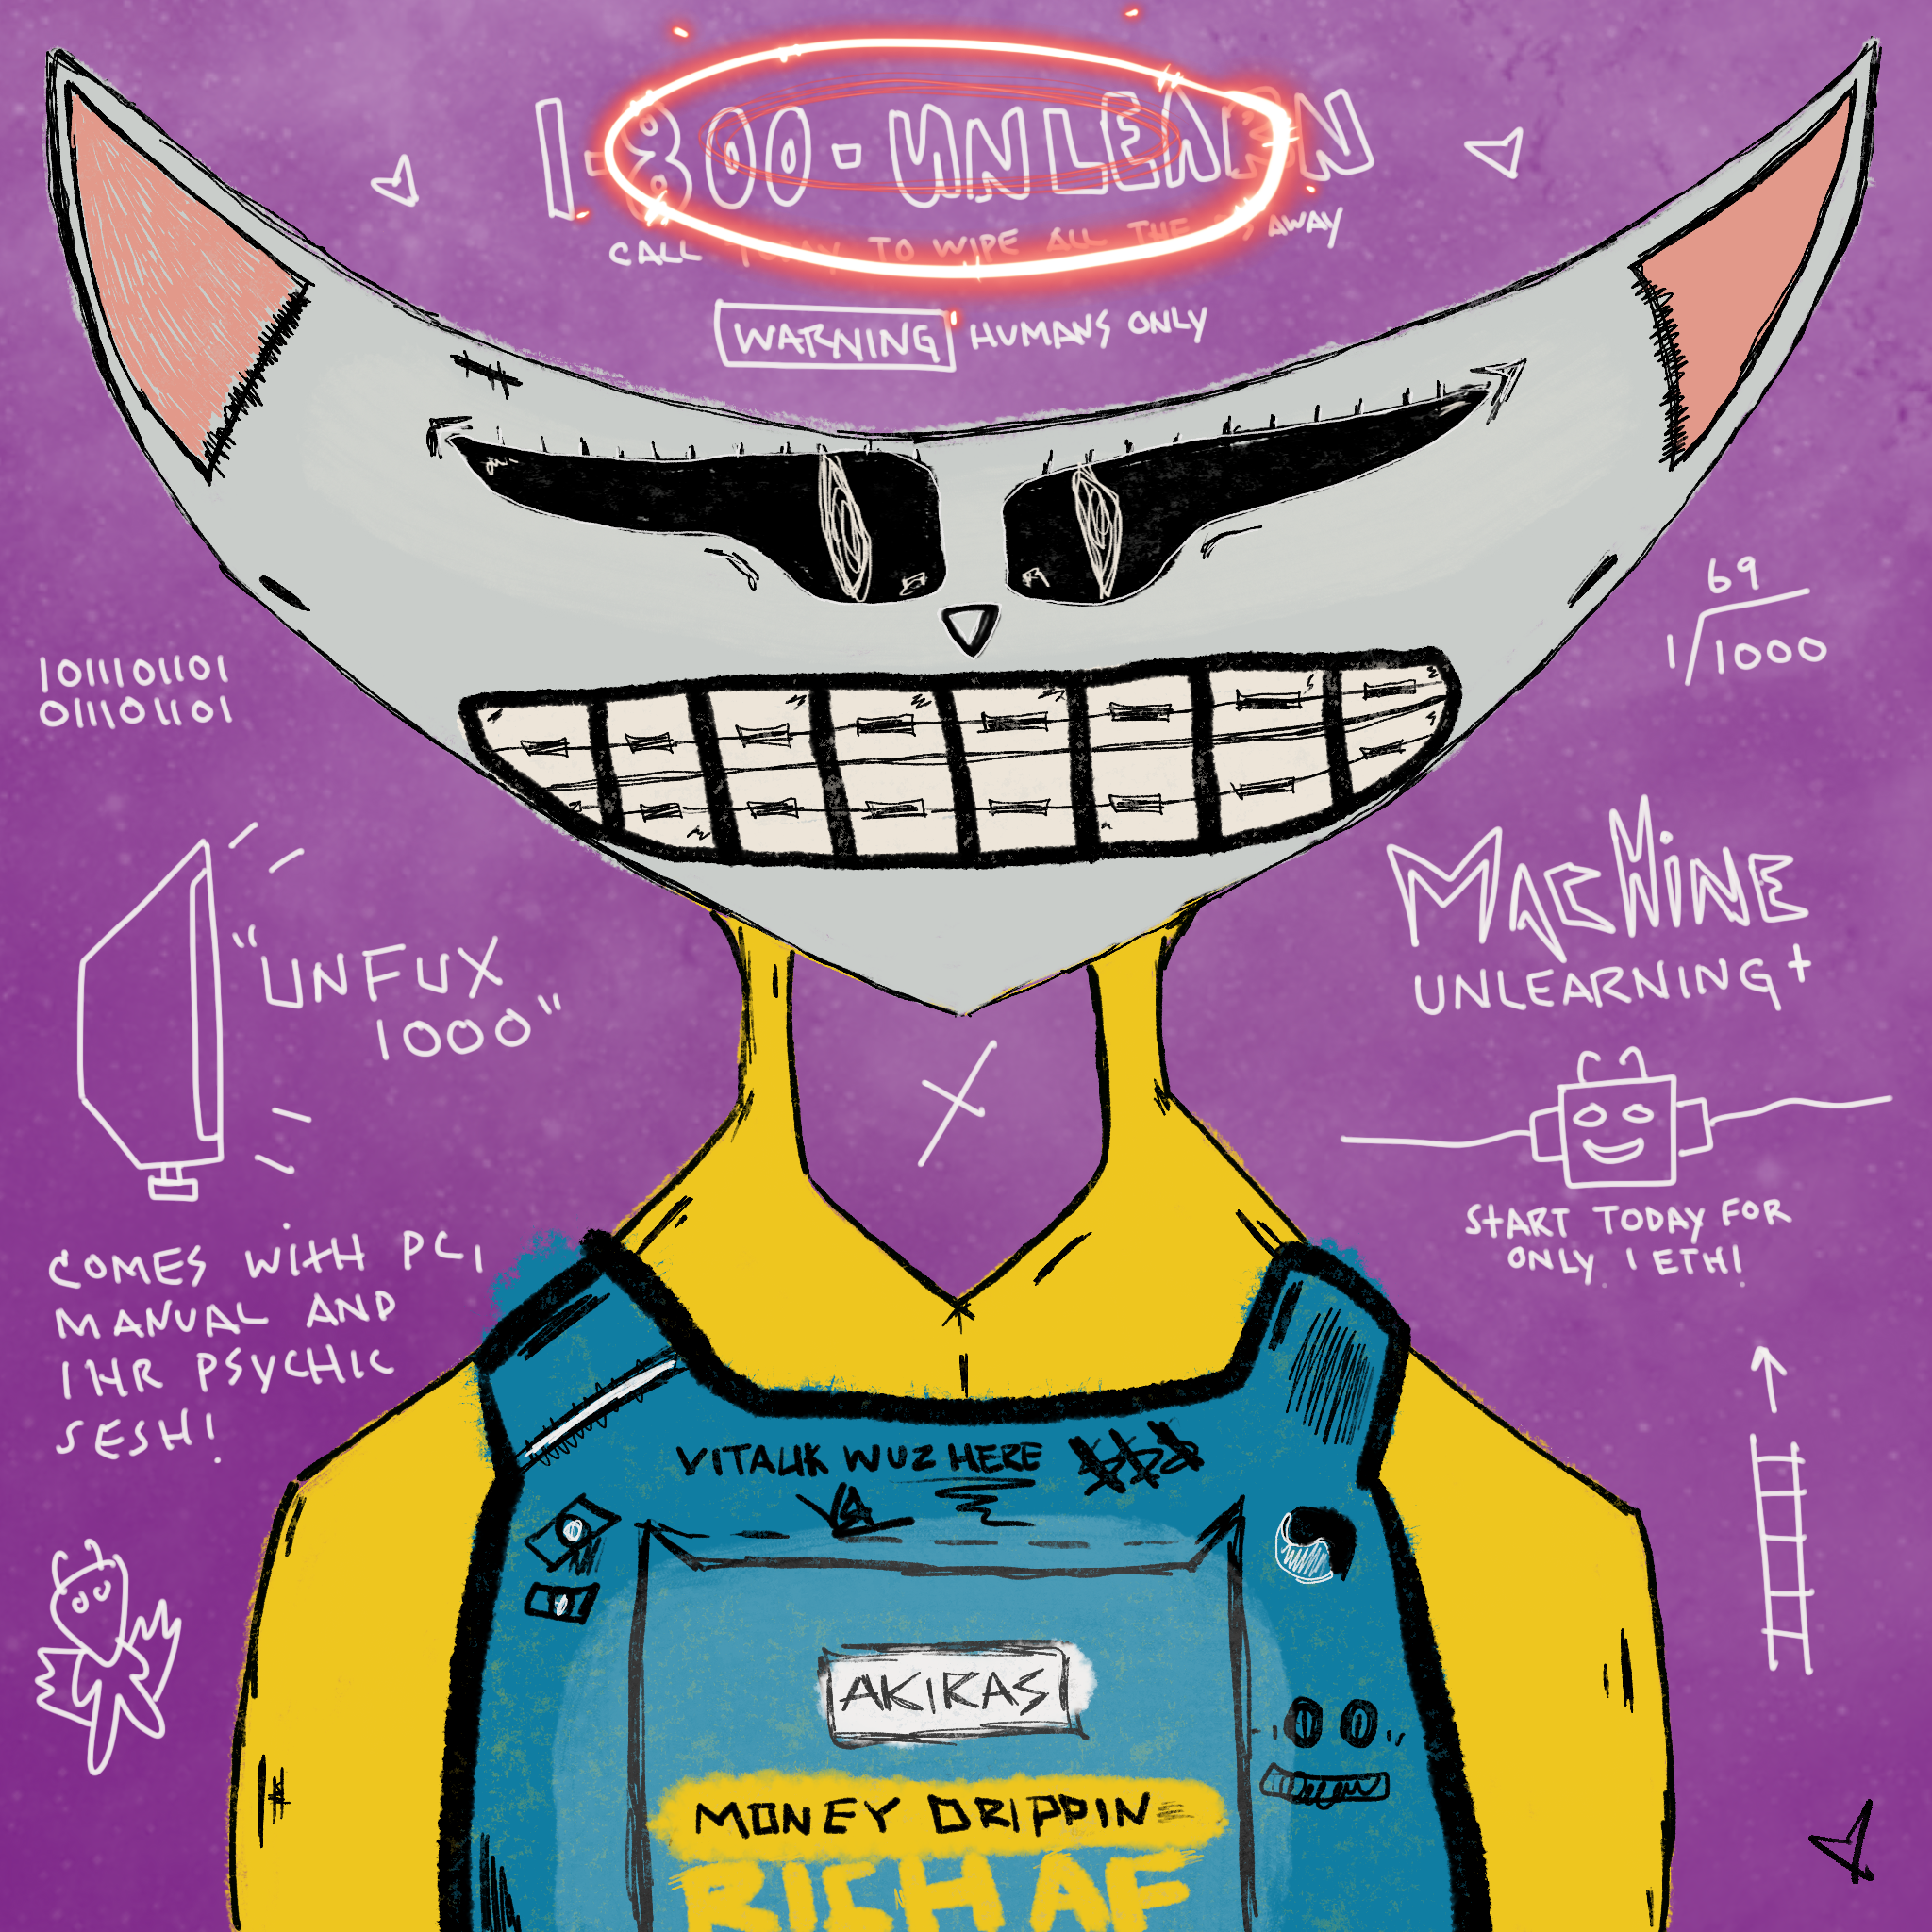 1-800-UNLEARN
CALL TODAY TO WIPE ALL THE AWAY
WARNING HUMANS ONLY
1011101101
011101101
69
1 1000
"UNFUX
1000"
MACHINE
UNLEARNING+
COMES WITH PC,
MANUAL AND
1HR PSYCHIC
SESH!
START TODAY FOR
ONLY 1 ETH!
VITALIK WUZ HERE
AKIRAS
MONEY DRIPPIN
RICH AF